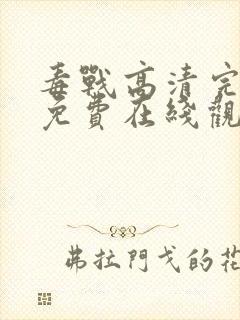 毒戰高清完
免費在綫觀
弗拉門戈的花